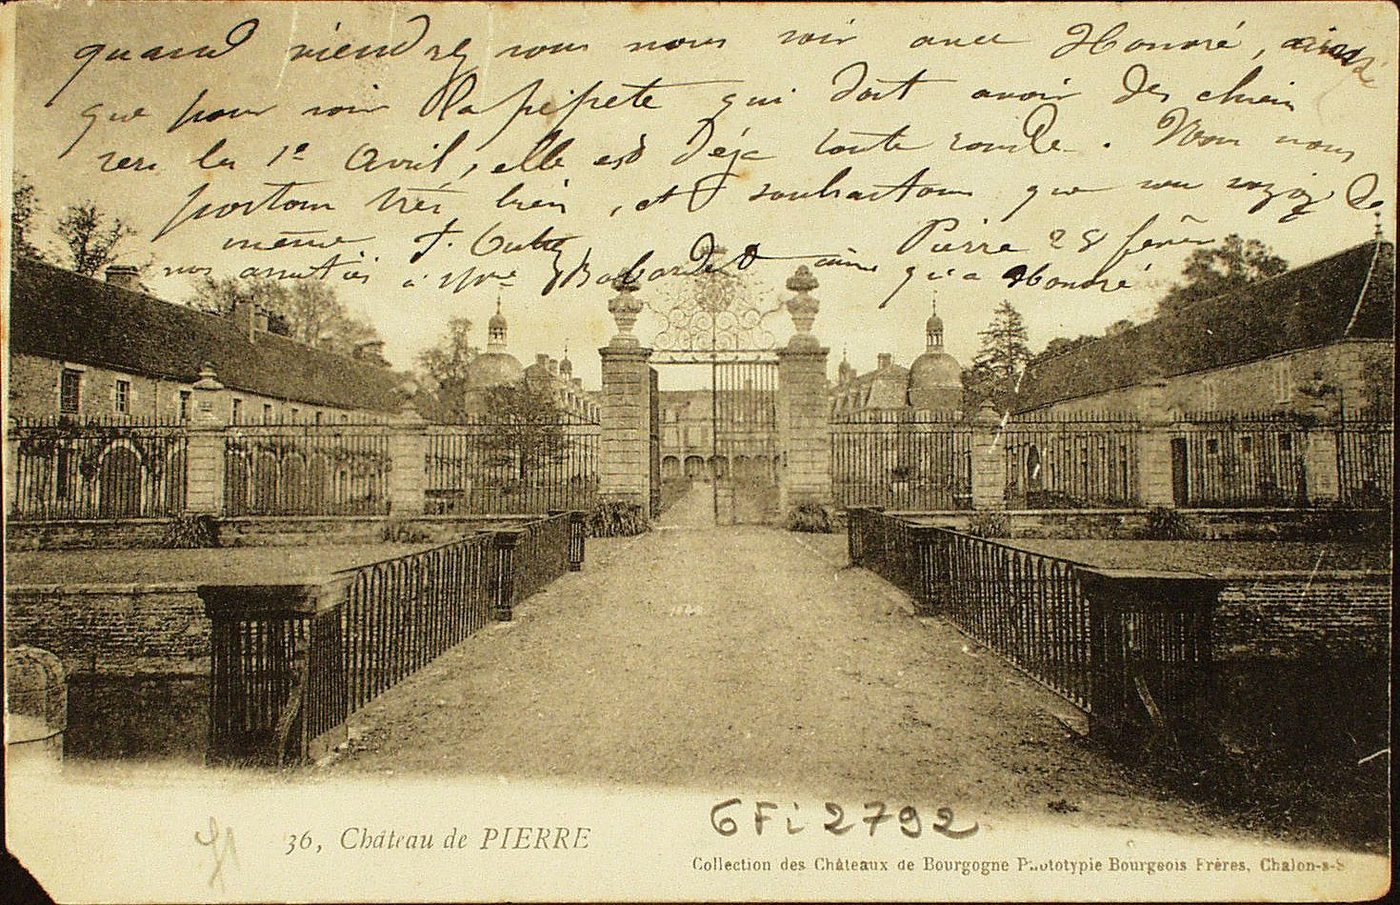 quand viendrez vous nous voir avec Honoré, ainsi
que pour voir la pépète qui doit avoir des chien
vers le 1e Avril, elle est déjà toute ronde. Nous nous
portons très bien, et souhaitons que vous soyez de
même
Pierre 28 févr
nos amitiés à Mme ainsi qu'a Honoré
36, Château de PIERRE
6Fi 2792
Collection des Châteaux de Bourgogne Phototypie Bourgeois Frères, Chalon-s-S